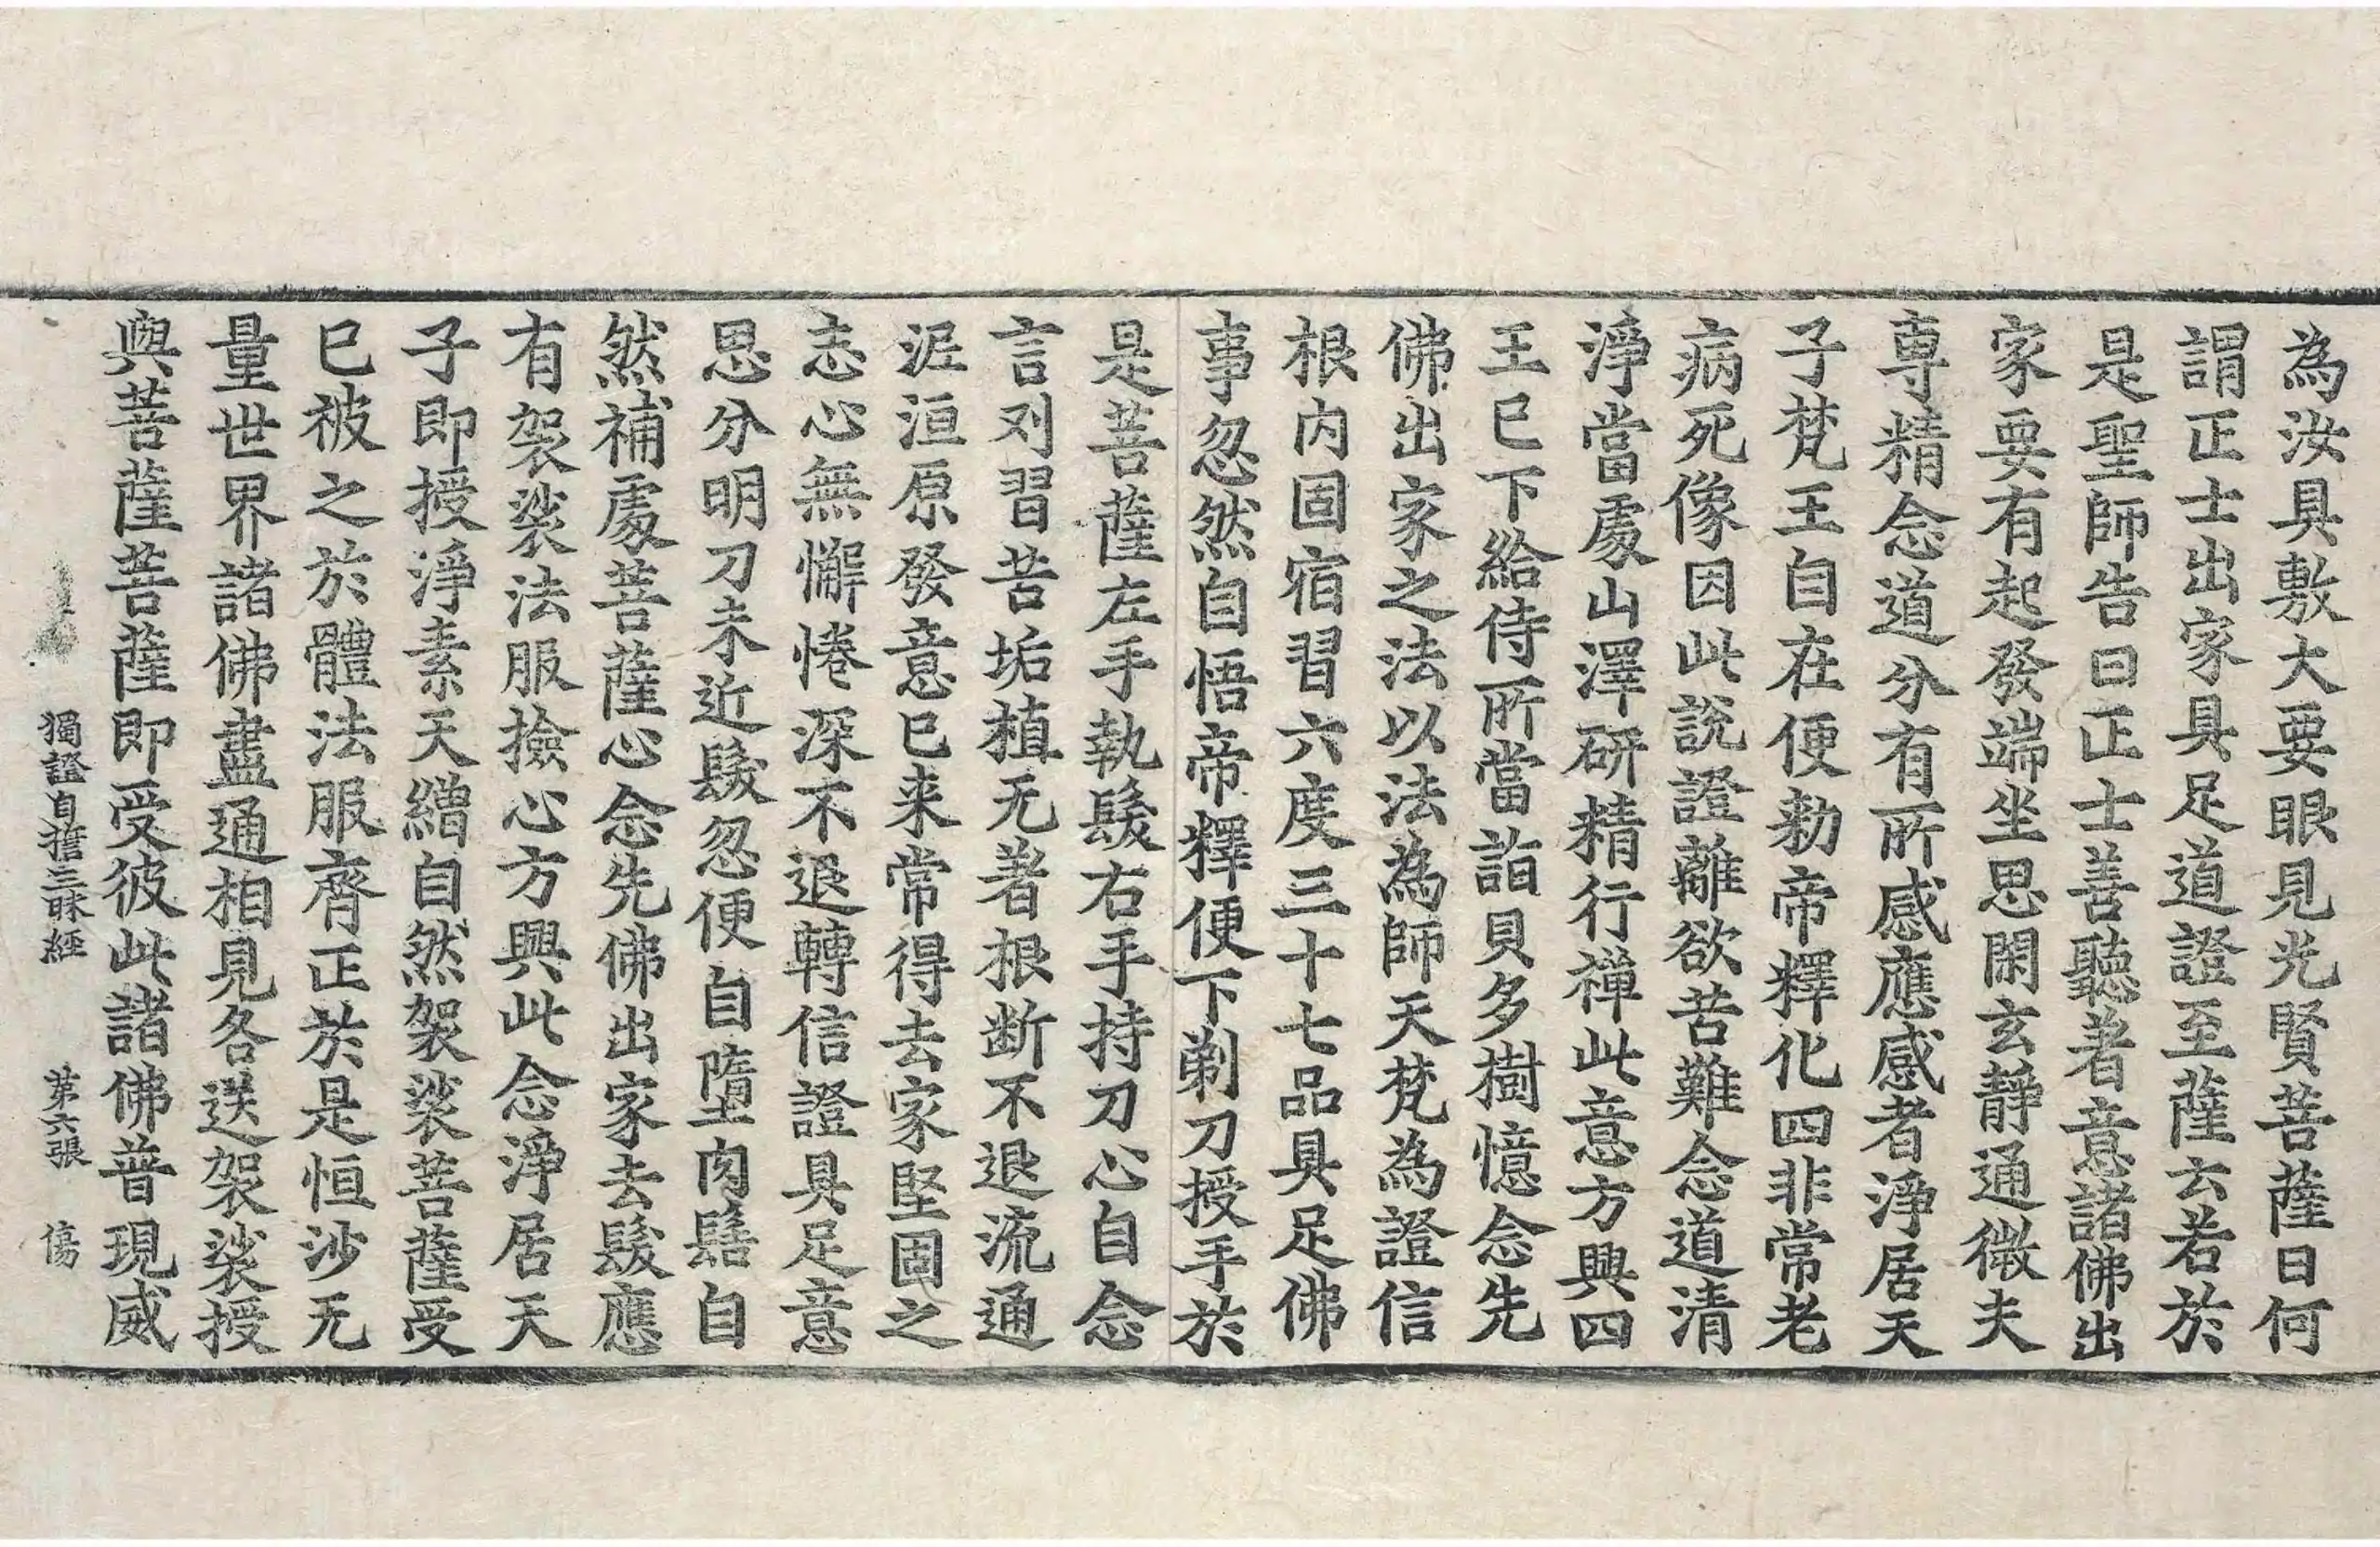 為汝具敷大要眼見光賢菩薩曰何
謂正士出家具足道證至薩云若於
是聖師告曰正士善聽著意諸佛出
家要有起發端坐思閑玄靜通微夫
専精念道分有所感應感者淨居天
子梵王自在便勑帝釋化四非常老
病死像因此説證離欲苦難念道清
淨當處山澤研精行禪此意方興四
王已下給侍所當詣貝多樹憶念先
佛出家之法以法為師天梵為證信
根内固宿習六度三十七品具足佛
事忽然自悟帝釋便下剃刀授手於
是菩薩左手執髮右手持刀心自念
言刈習苦垢植无著根断不退流通
泥洹原發意已来常得去家堅固之
志心無懈惓深不退轉信證具足意
思分明刀未近髮忽便自墮肉髻自
然補處菩薩心念先佛出家去髮應
有袈裟法服撿心方興此念淨居天
子即授淨素天繒自然袈裟菩薩受
已被之於體法服齊正於是恒沙无
量世界諸佛盡通相見各送袈裟授
與菩薩菩薩即受彼此諸佛普現威
獨證自擔三昧經　第六張　傷